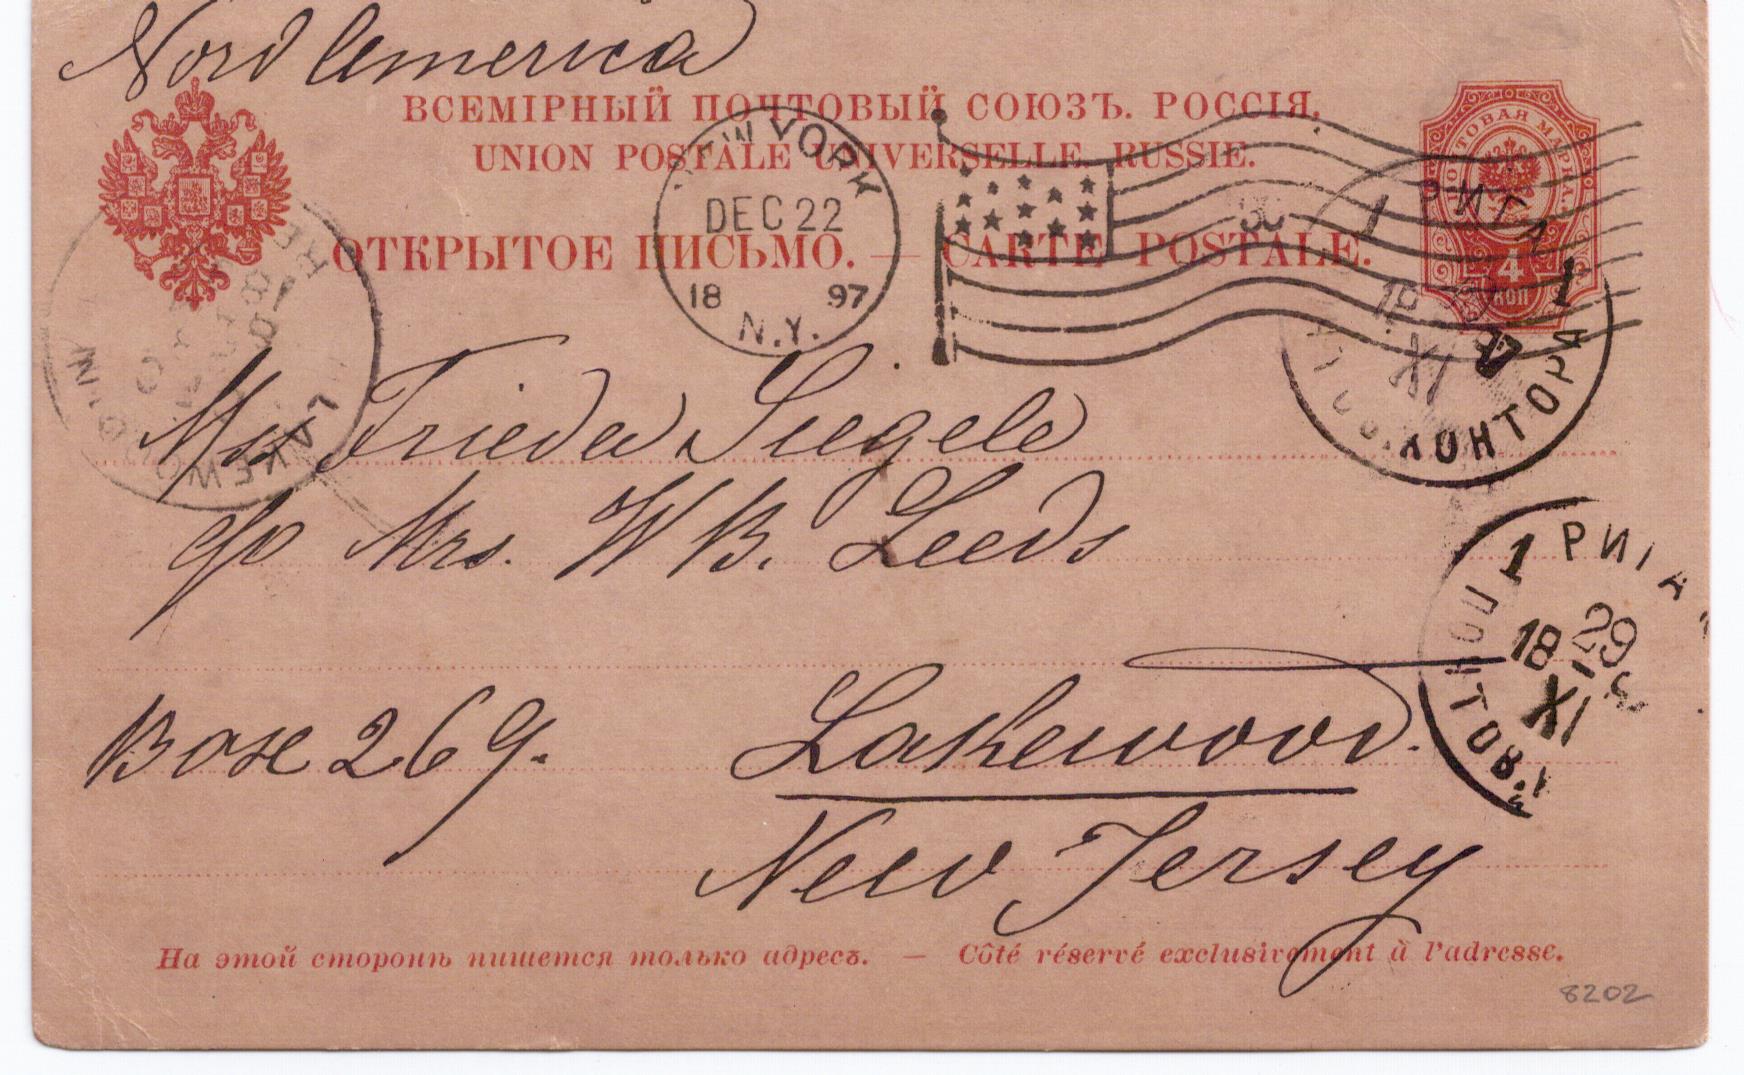 Nord America
ВСЕМІРНЫЙ ПОЧТОВЫЙ СОЮЗЪ. РОССІЯ.
UNION POSTALE UNIVERSELLE. RUSSIE.
ОТКРЫТОЕ ПИСЬМО. — CARTE POSTALE.
ПОЧТОВАЯ МАРКА
4
КОП
NEW YORK
DEC 22
18 97
N.Y.
1 РИГА 1
XI
КОНТОРА
LAKEWOOD
Miss Frieda Siegele
c/o Mrs. W B. Leeds
1 РИГА
29
18
XI
ПОЧТОВ.
Box 269. Lakewood.
New Jersey
На этой сторонѣ пишется только адресъ. — Côté réservé exclusivement à l'adresse.
8202